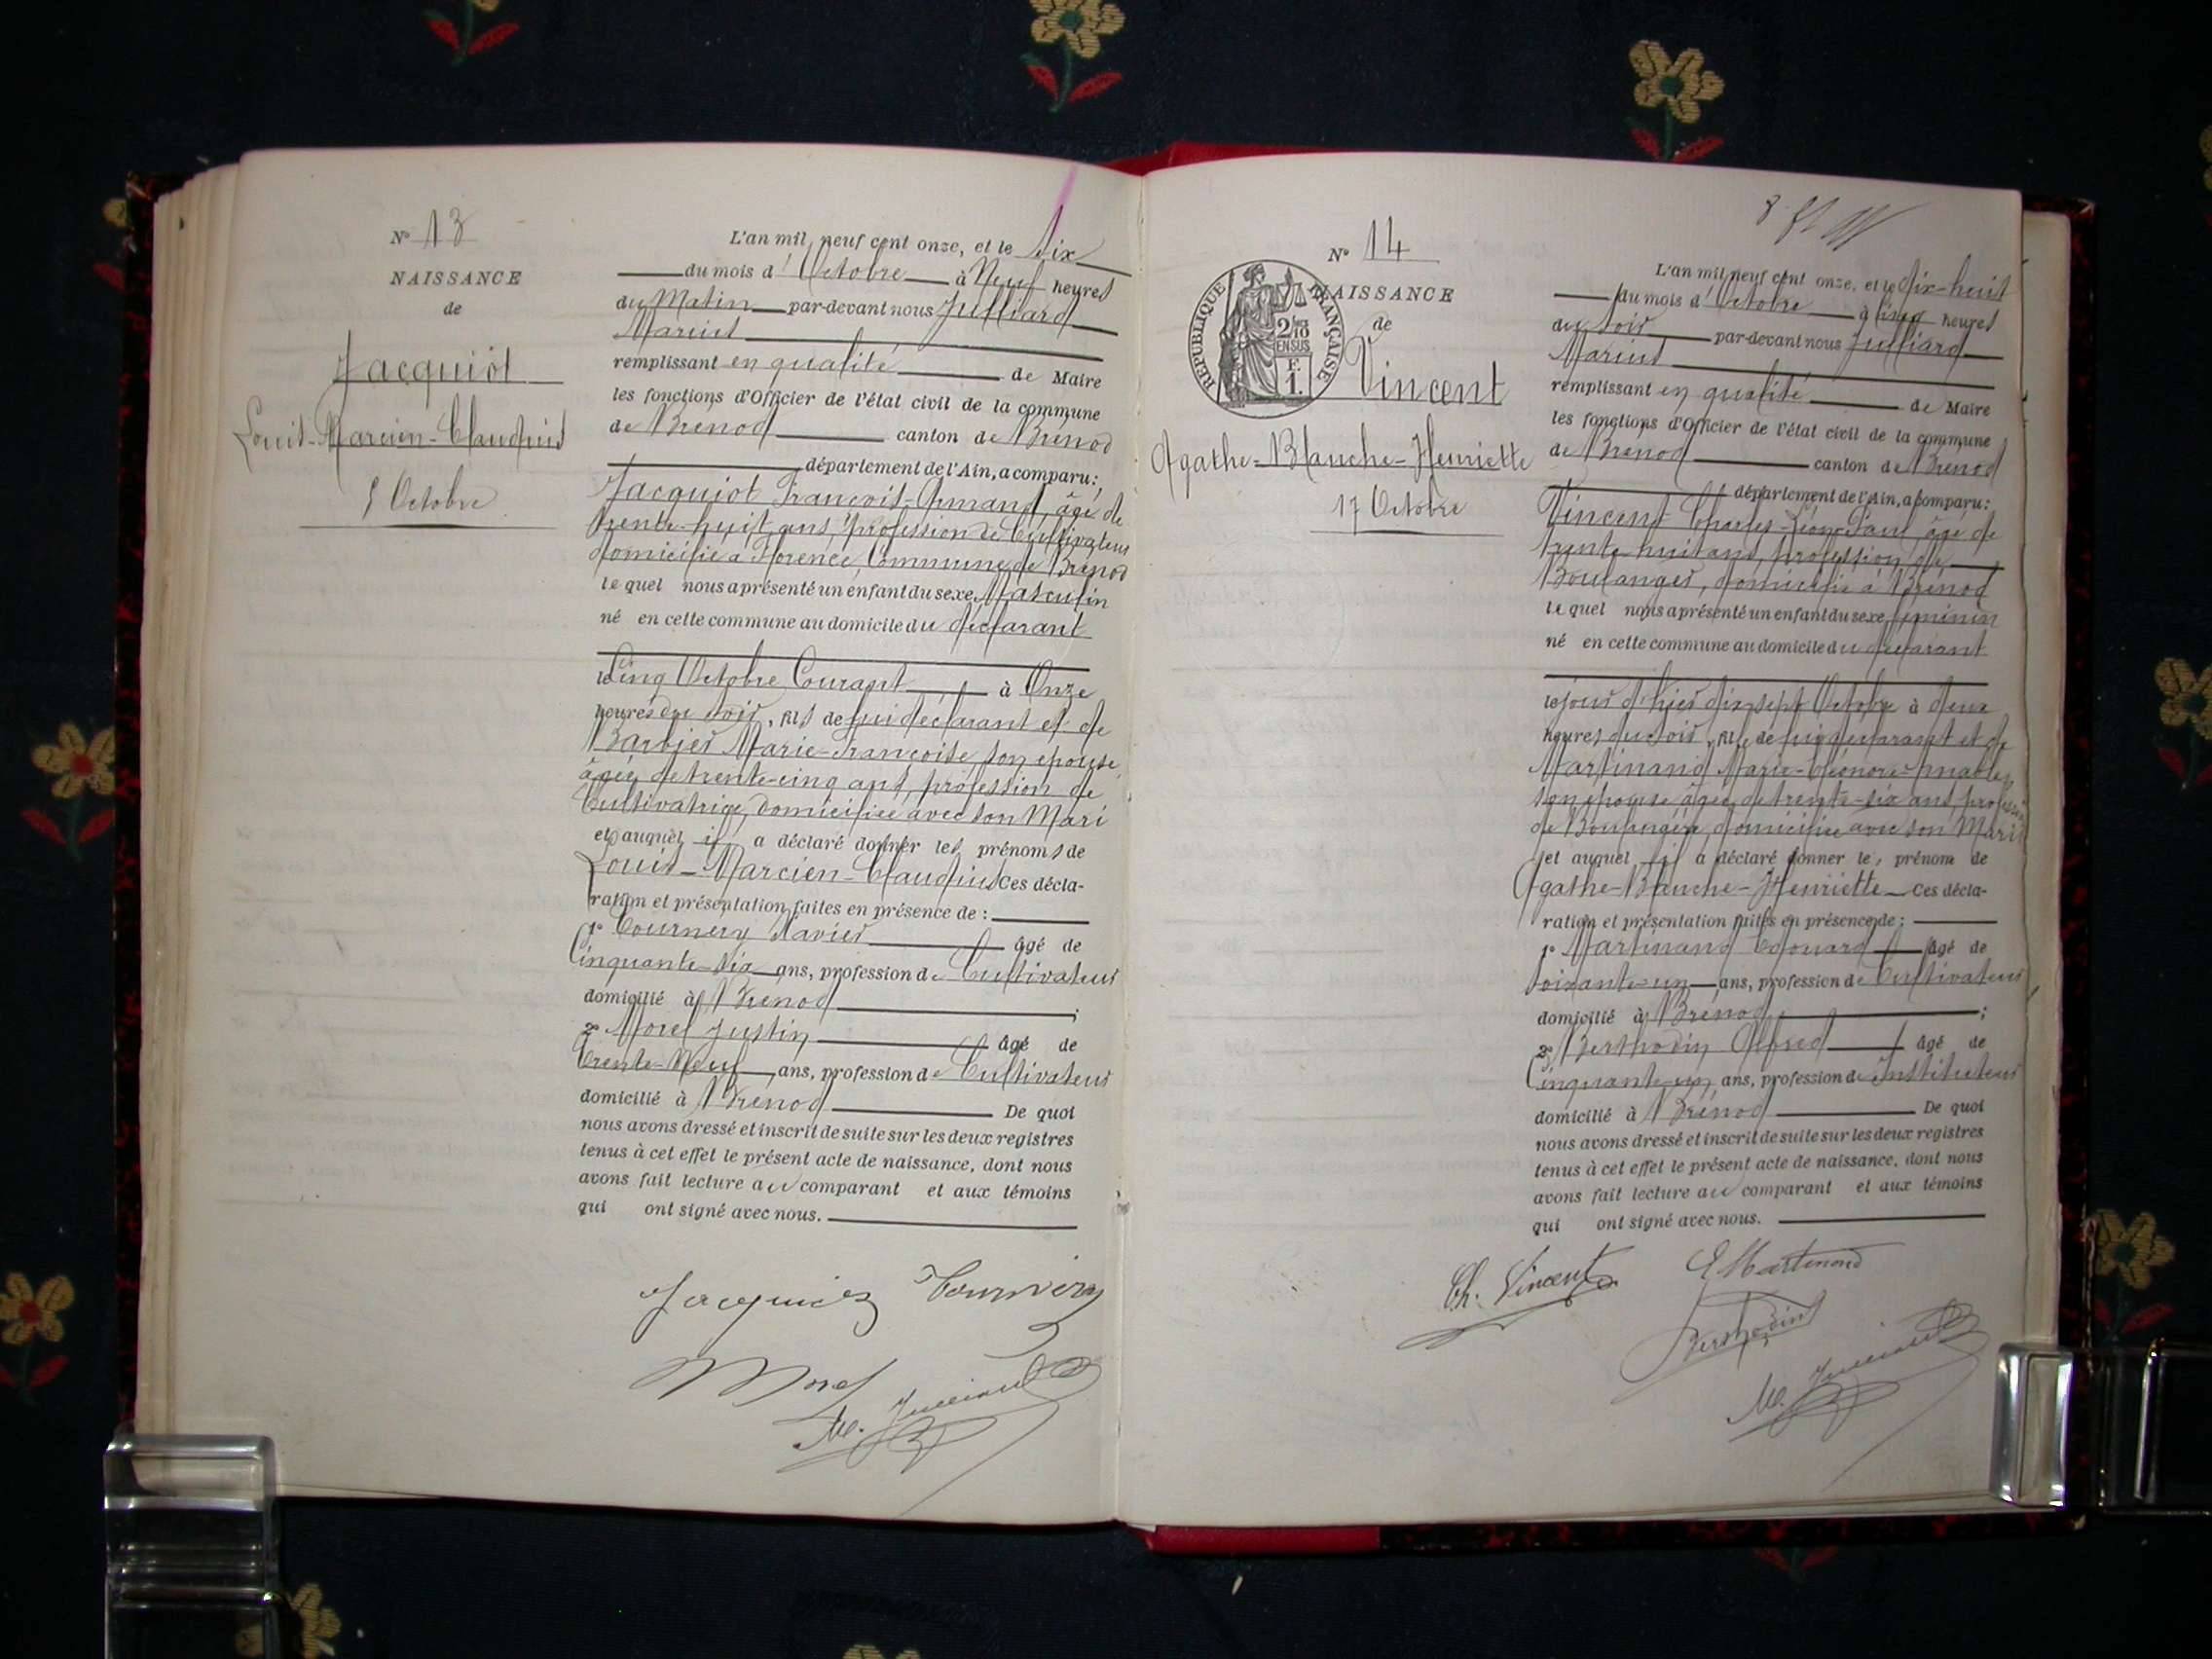 N° 13
NAISSANCE
de
Jacquiot
Louis-Marcien-Claudius
5 Octobre
L'an mil neuf cent onze, et le Six
du mois d'Octobre à Neuf heures
du Matin par-devant nous Julliard
Marius
remplissant en qualité de Maire
les fonctions d'Officier de l'état civil de la commune
de Brénod canton de Brénod
département de l'Ain, a comparu:
Jacquiot François-Armand, âgé de
trente-huit ans, profession de Cultivateur
domicilié à Florence, Commune de Brénod
le quel nous a présenté un enfant du sexe Masculin
né en cette commune au domicile du déclarant
le Cinq Octobre Courant à Onze
heures du soir, fils de lui déclarant et de
Barbier Marie-Françoise, son épouse,
âgée de trente-cinq ans, profession de
Cultivatrice, domiciliée avec son Mari
et auquel il a déclaré donner les prénoms de
Louis-Marcien-Claudius Ces décla-
ration et présentation faites en présence de :
1° Tournery Xavier âgé de
Cinquante-six ans, profession de Cultivateur
domicilié à Brénod ;
2° Morel Justin âgé de
trente-Neuf ans, profession de Cultivateur
domicilié à Brénod De quoi
nous avons dressé et inscrit de suite sur les deux registres
tenus à cet effet le présent acte de naissance, dont nous
avons fait lecture au comparant et aux témoins
qui ont signé avec nous.
Jacquiot Tournery
Morel
M. Julliard
N° 14
NAISSANCE
RÉPUBLIQUE FRANÇAISE
2/10 EN SUS
F. 1.
de
Vincent
Agathe-Blanche-Henriette
17 Octobre
L'an mil neuf cent onze, et le dix-huit
du mois d'Octobre à Cinq heures
du soir par-devant nous Julliard
Marius
remplissant en qualité de Maire
les fonctions d'Officier de l'état civil de la commune
de Brénod canton de Brénod
département de l'Ain, a comparu:
Vincent Charles-Léon-Paul, âgé de
trente-huit ans, profession de
Boulanger, domicilié à Brénod
le quel nous a présenté un enfant du sexe féminin
né en cette commune au domicile du déclarant
le jour d'hier dix-sept Octobre à deux
heures du soir, fille de lui déclarant et de
Martinand Marie-Léonore-
son épouse âgée de trente-six ans, profession
de Boulangère, domiciliée avec son Mari
et auquel il a déclaré donner le, prénom de
Agathe-Blanche-Henriette Ces décla-
ration et présentation faites en présence de :
1° Martinand Edouard âgé de
soixante-un ans, profession de Cultivateur
domicilié à Brénod ;
2° Berthodin Alfred âgé de
Cinquante-un ans, profession de Instituteur
domicilié à Brénod De quoi
nous avons dressé et inscrit de suite sur les deux registres
tenus à cet effet le présent acte de naissance, dont nous
avons fait lecture au comparant et aux témoins
qui ont signé avec nous.
Ch. Vincent E Martinand
Berthodin
M. Julliard